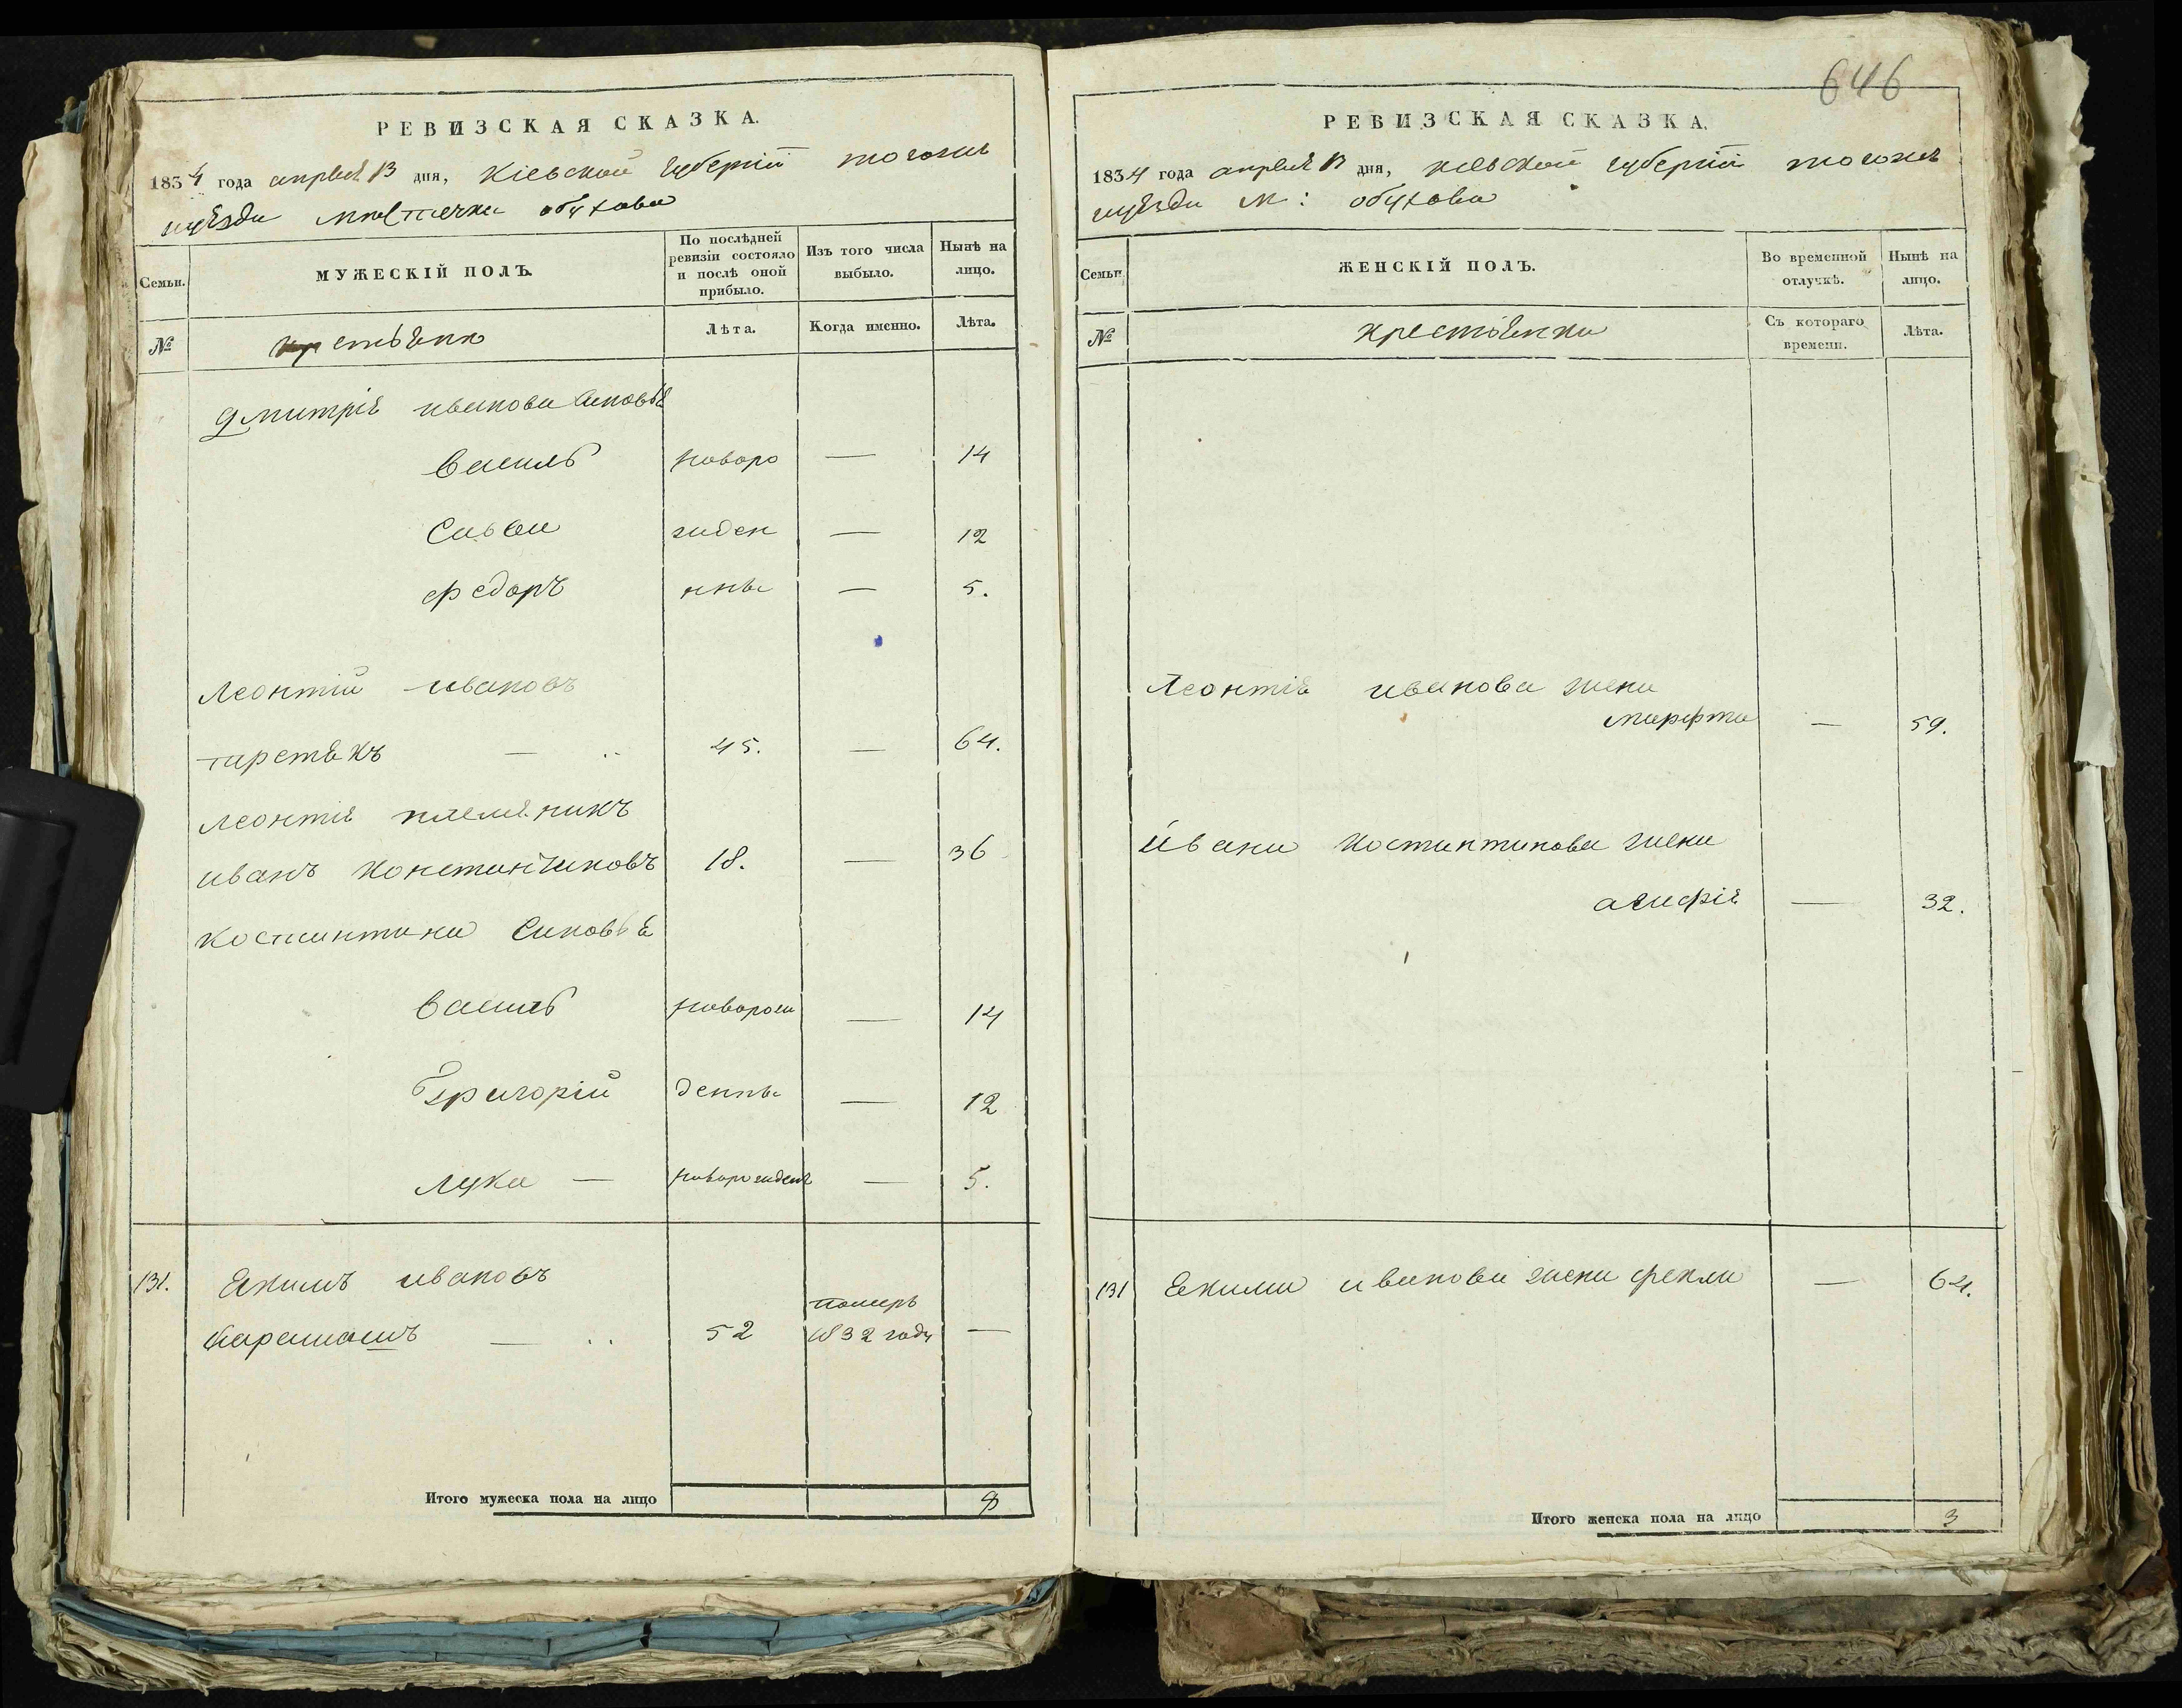 РЕВИЗСКАЯ СКАЗКА.
1834 года апреля 13 дня, Кіевской губерніи тогожъ
уѣзда местечка обухова
Семьи.
МУЖЕСКІЙ ПОЛЪ.
По послѣдней ревизіи состояло и послѣ оной прибыло.
Изъ того числа выбыло.
Нынѣ на лицо.
№
Лѣта.
Когда именно.
Лѣта.
Дмитрія иванова синовья
василь новоро — 14
Савва жден — 12
федоръ нны — 5.
Леонтій ивановъ
— 45. — 64.
леонтія племяникъ
иванъ константиновъ 18. — 36
костантина синовья
василь новорож — 14
Григорій денны — 12
лука — новорожденъ — 5.
131. Екимъ ивановъ
— 52 померъ 1832 году —
Итого мужеска пола на лицо 8
646
РЕВИЗСКАЯ СКАЗКА.
1834 года апреля 13 дня, кіевской губерніи тогожъ
уѣзда м: обухова
Семьи.
ЖЕНСКІЙ ПОЛЪ.
Во временной отлучкѣ.
Нынѣ на лицо.
№
крестьянки
Съ котораго времени.
Лѣта.
Леонтія иванова жена
марфта — 59.
ивана костантинова жена
агафія — 32.
131 Екима иванова жена фекла — 64.
Итого женска пола на лицо 3